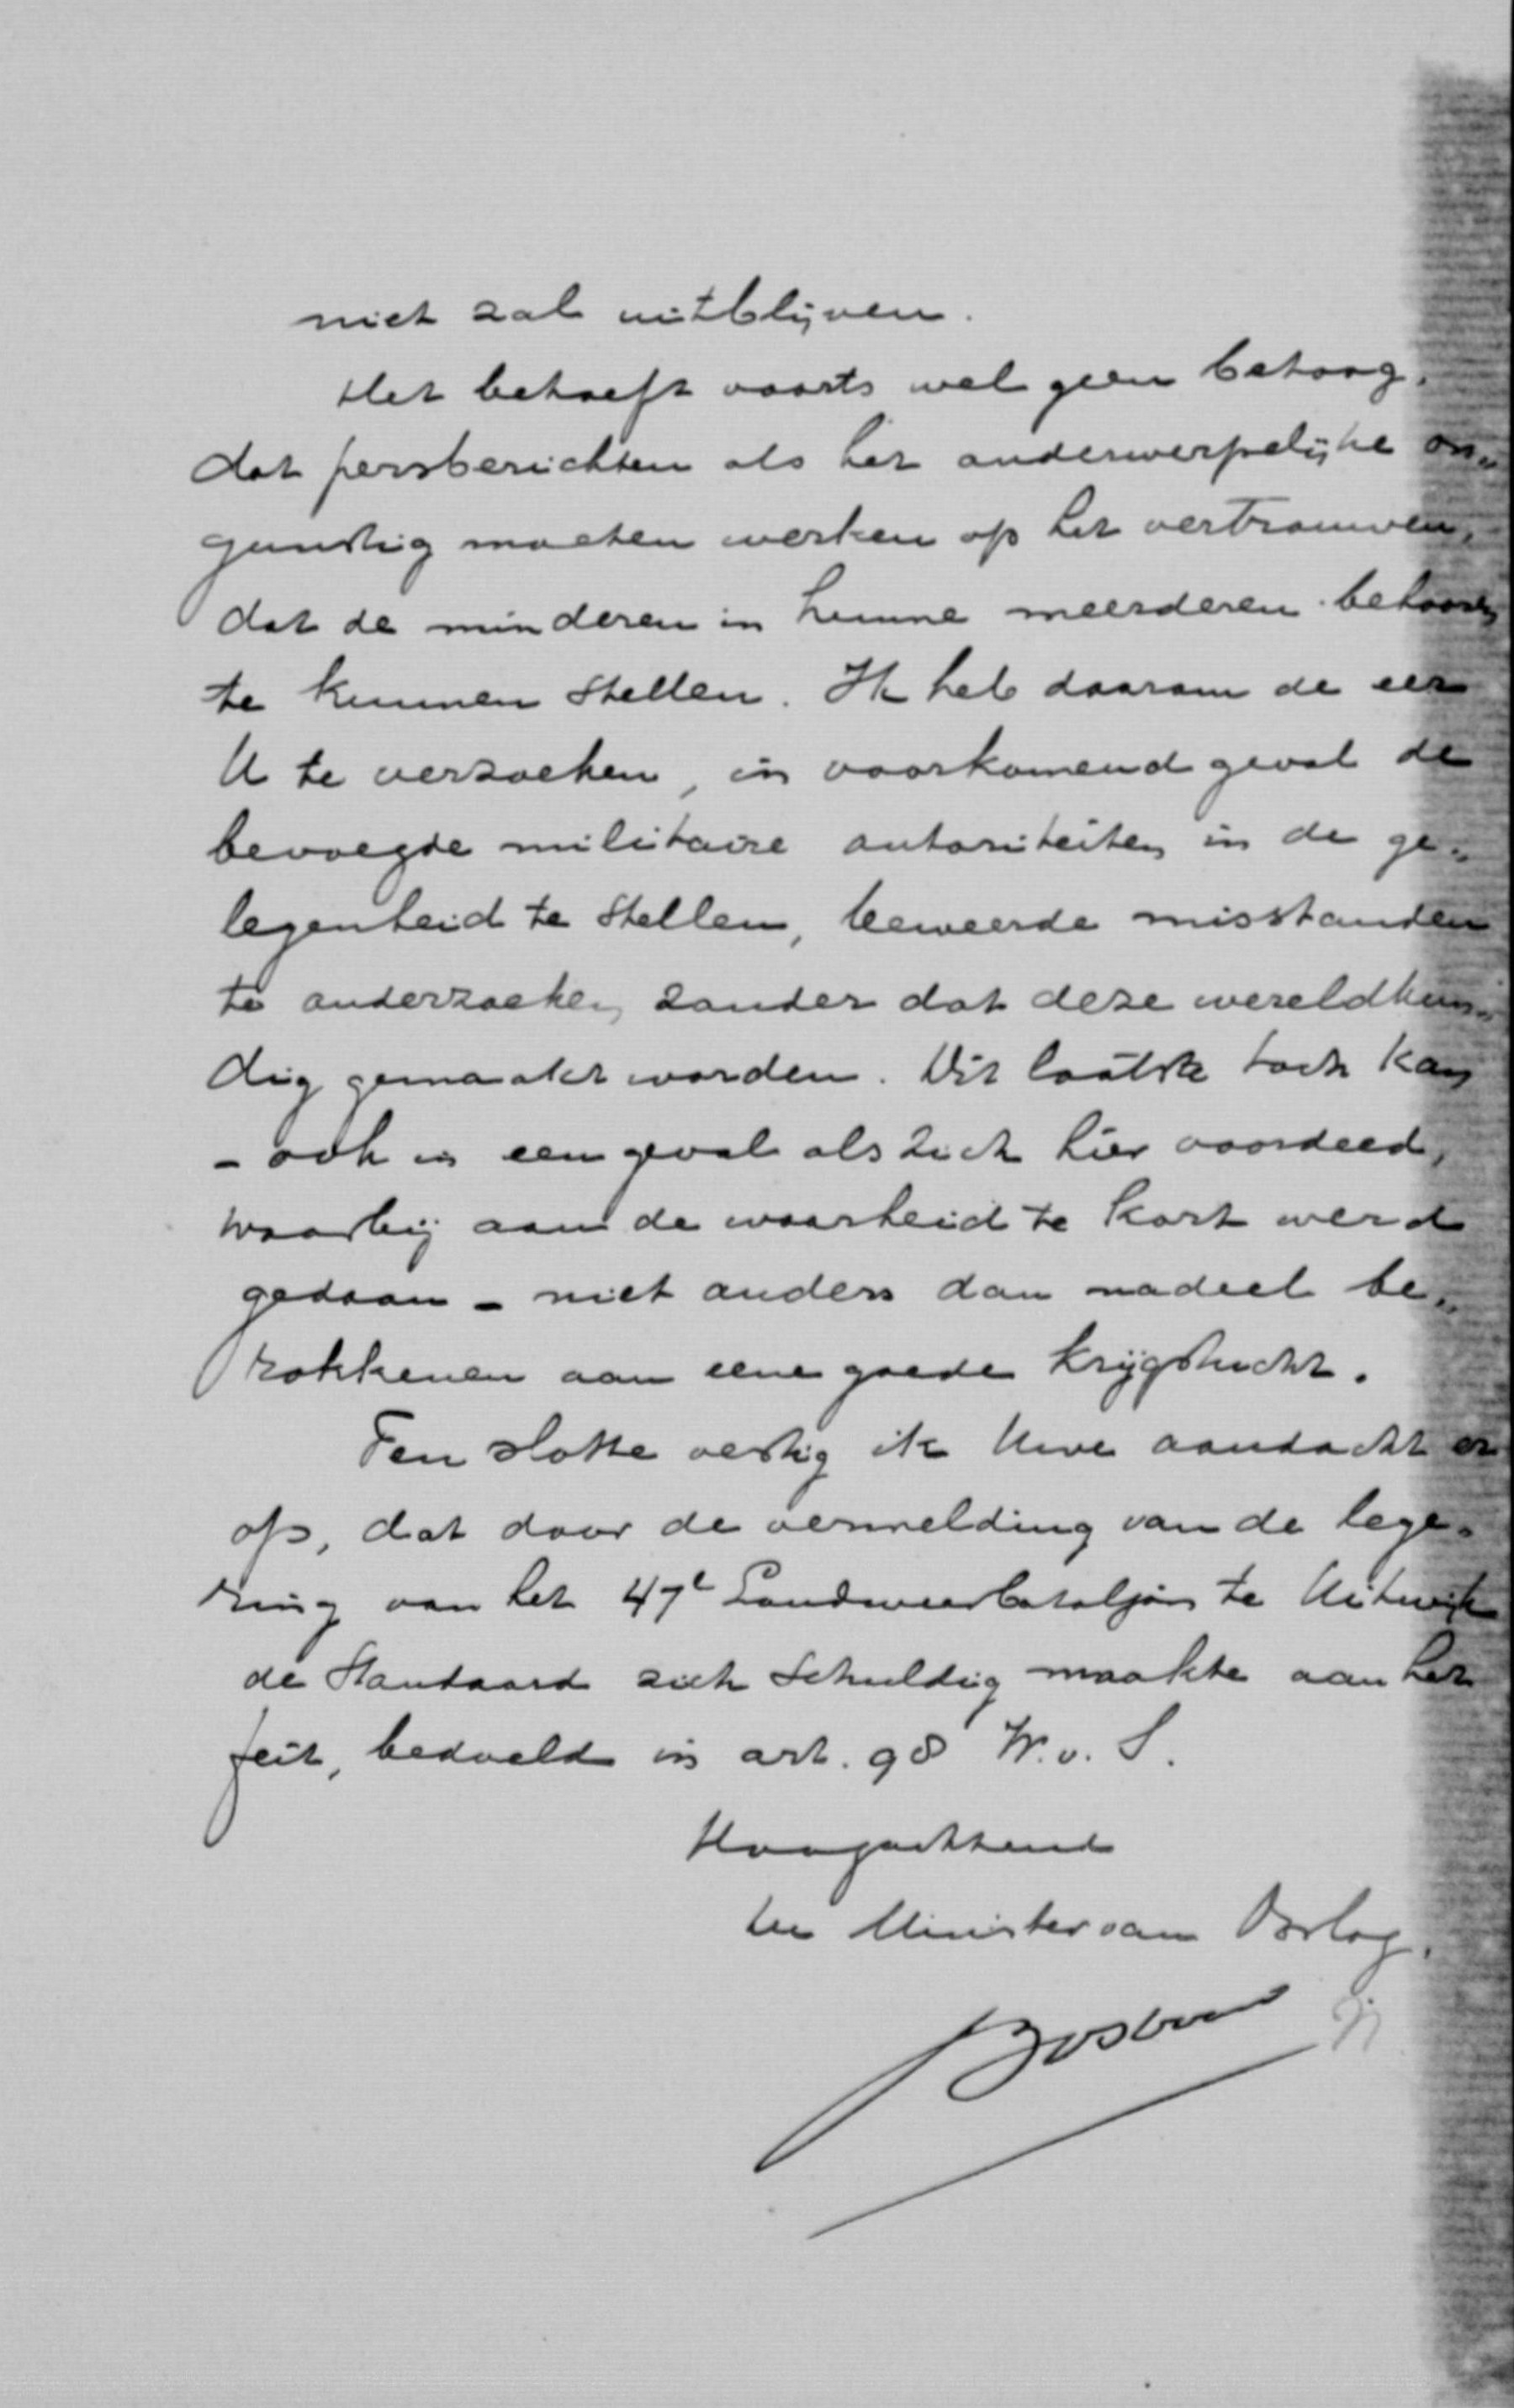 niet zal uitblijven.
Het behoeft voorts wel geen betoog,
dat persberichten als het onderwerpelijke on„
gunstig moeten werken op het vertrouwen,
dat de minderen in hunne meerderen behooren
te kunnen stellen. Ik heb daarom de eer
U te verzoeken, in voorkomend geval de
bevoegde militaire autoriteiten in de ge„
legenheid te stellen, beweerde misstanden
te onderzoeken, zonder dat deze wereldkun„
dig gemaakt worden. Dit laatste toch kan
- ook in een geval als zich hier voordeed,
waarbij aan de waarheid te kort werd
gedaan - niet anders dan nadeel be„
rokkenen aan eene goede krijgstucht.
Ten slotte vestig ik Uwe aandacht er
op, dat door de vermelding van de lege„
ring van het 47e Landweerbataljon te Uitwijk
de Standaard zich schuldig maakte aan het
feit, bedoeld in art. 98 W.v.S.
Hoogachtend
De Minister van Oorlog,
Bosboom